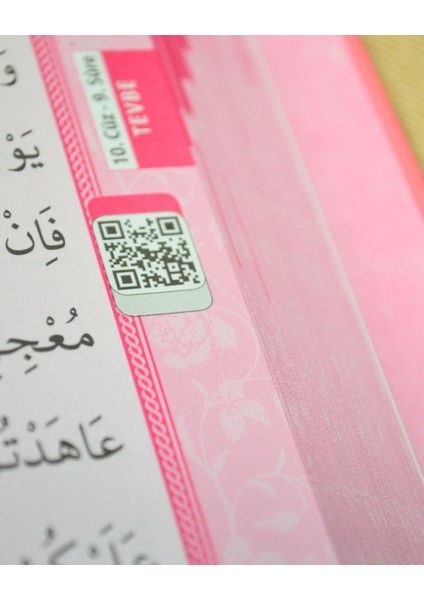 10. Cüz - 9. Sûre
TEVBE
يَوْ
فَاِنْ
مُعْجِزِ
عَاهَدْتُ